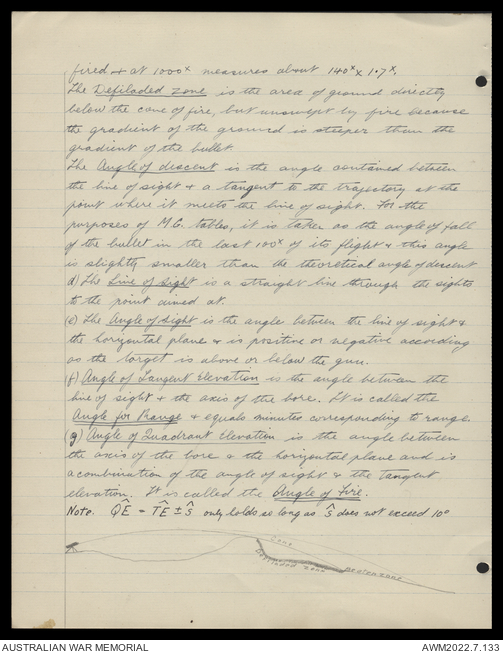 fired + at 1000x measures about 140x x 1.7x.
The Defiladed zone is the area of ground directly
below the cone of fire, but unswept by fire because
the gradient of the ground is steeper than the
gradient of the bullet
The Angle of descent is the angle contained between
the line of sight + a tangent to the trajectory at the
point where it meets the line of sight. For the
purposes of M.G. tables, it is taken as the angle of fall
of the bullet in the last 100x of its flight + this angle
is slightly smaller than the theoretical angle of descent
d) The Line of Sight is a straight line through the sights
to the point aimed at.
(e) The Angle of Sight is the angle between the line of sight +
the horizontal plane + is positive or negative according
as the target is above or below the gun.
(f) Angle of Tangent Elevation is the angle between the
line of sight + the axis of the bore. It is called the
Angle for Range + equals minutes corresponding to range.
(g) Angle of Quadrant Elevation is the angle between
the axis of the bore + the horizontal plane and is
a combination of the angle of sight + the tangent
elevation. It is called the Angle of Fire.
Note. QÊ = TÊ ± ŝ only holds so long as ŝ does not exceed 10°
Cone
Defiladed zone
Beaten zone
AUSTRALIAN WAR MEMORIAL
AWM2022.7.133